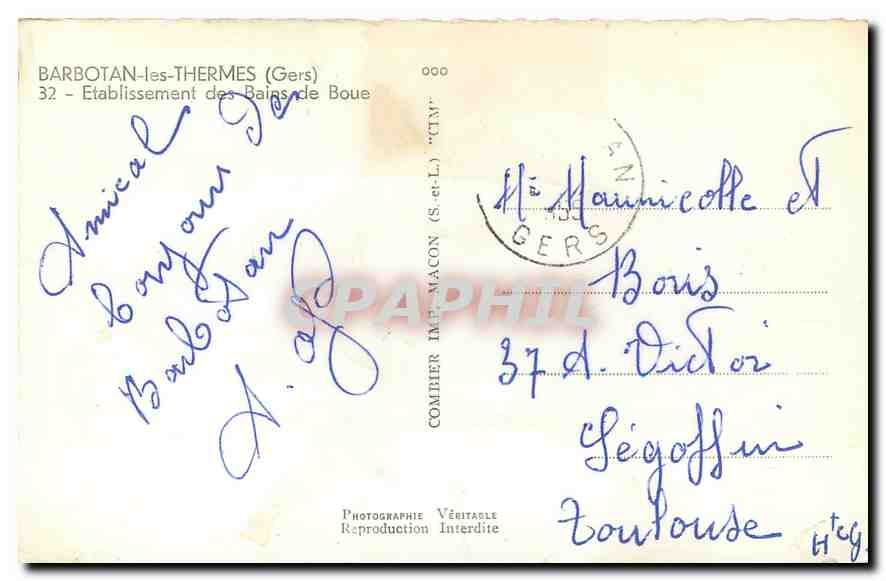 BARBOTAN-les-THERMES (Gers)
32 - Etablissement des Bains de Boue
ooo
Amical
bonjour de
Barbotan
COMBIER IMP. MACON (S.-et-L.) "CIM"
AN
GERS
CPAPHIL
Mme Maunicolle et
Boris
37 A. Victor
Ségoffin
Toulouse
Hte G.
PHOTOGRAPHIE VÉRITABLE
Reproduction Interdite